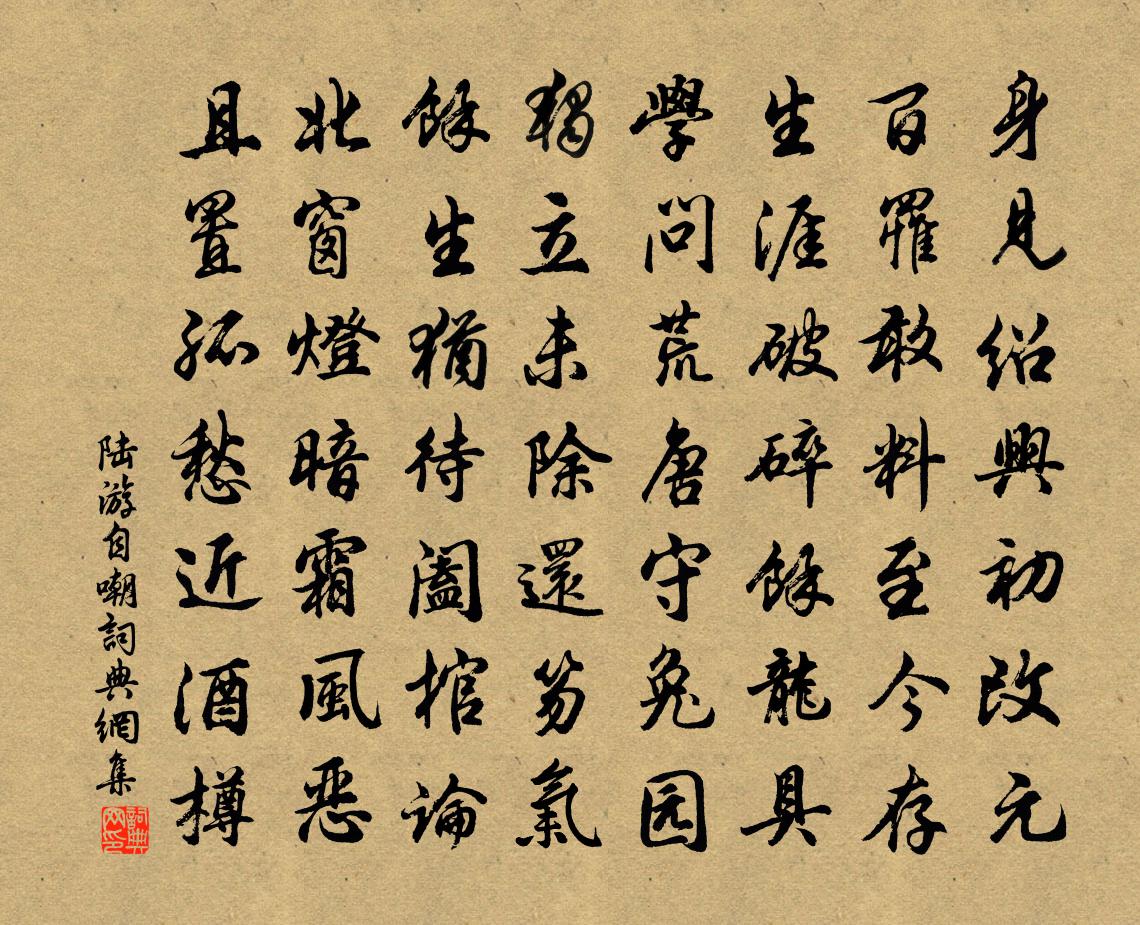 身見紹興初改元
百罹敢料至今存
生涯破碎餘龍具
學問荒唐守兔园
獨立未除還笏氣
餘生猶待闔棺論
北窗燈暗霜風惡
且置孤愁近酒樽
陸游自嘲詞典網集
詞典網印